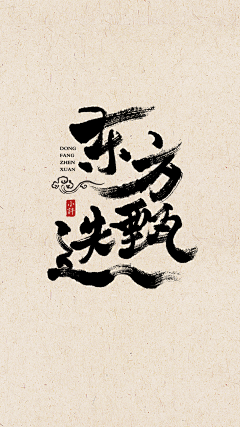 东方
甄选
DONG
FANG
ZHEN
XUAN
小許